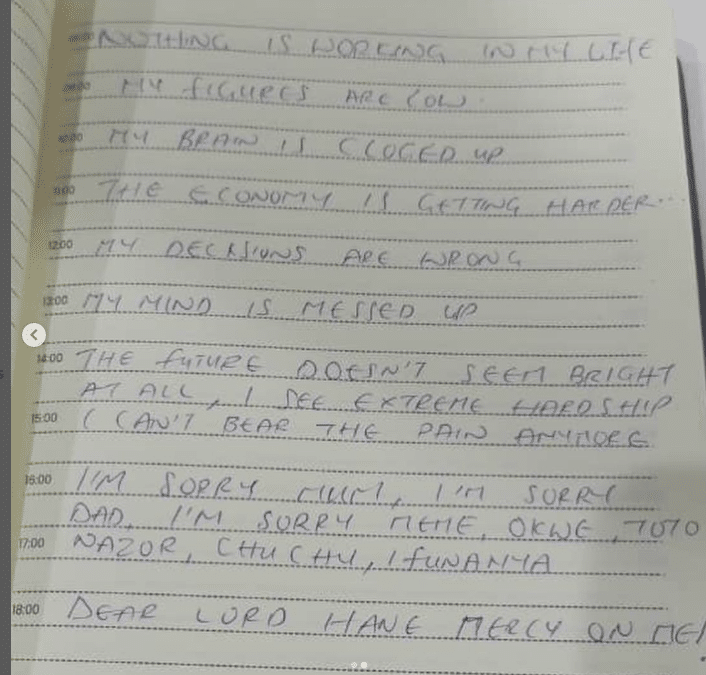 NOTHING IS WORKING IN MY LIFE
MY FIGURES ARE LOW.
10:00 MY BRAIN IS CLOGED UP
11:00 THE ECONOMY IS GETTING HARDER...
12:00 MY DECISIONS ARE WRONG
13:00 MY MIND IS MESSED UP
14:00 THE FUTURE DOESN'T SEEM BRIGHT
AT ALL, I SEE EXTREME HARDSHIP
15:00 I CAN'T BEAR THE PAIN ANYMORE
16:00 I'M SORRY MUM, I'M SORRY
DAD, I'M SORRY MEME, OKWE, TOTO
17:00 NAZOR, CHUCHU, IFUNANYA
18:00 DEAR LORD HAVE MERCY ON ME!